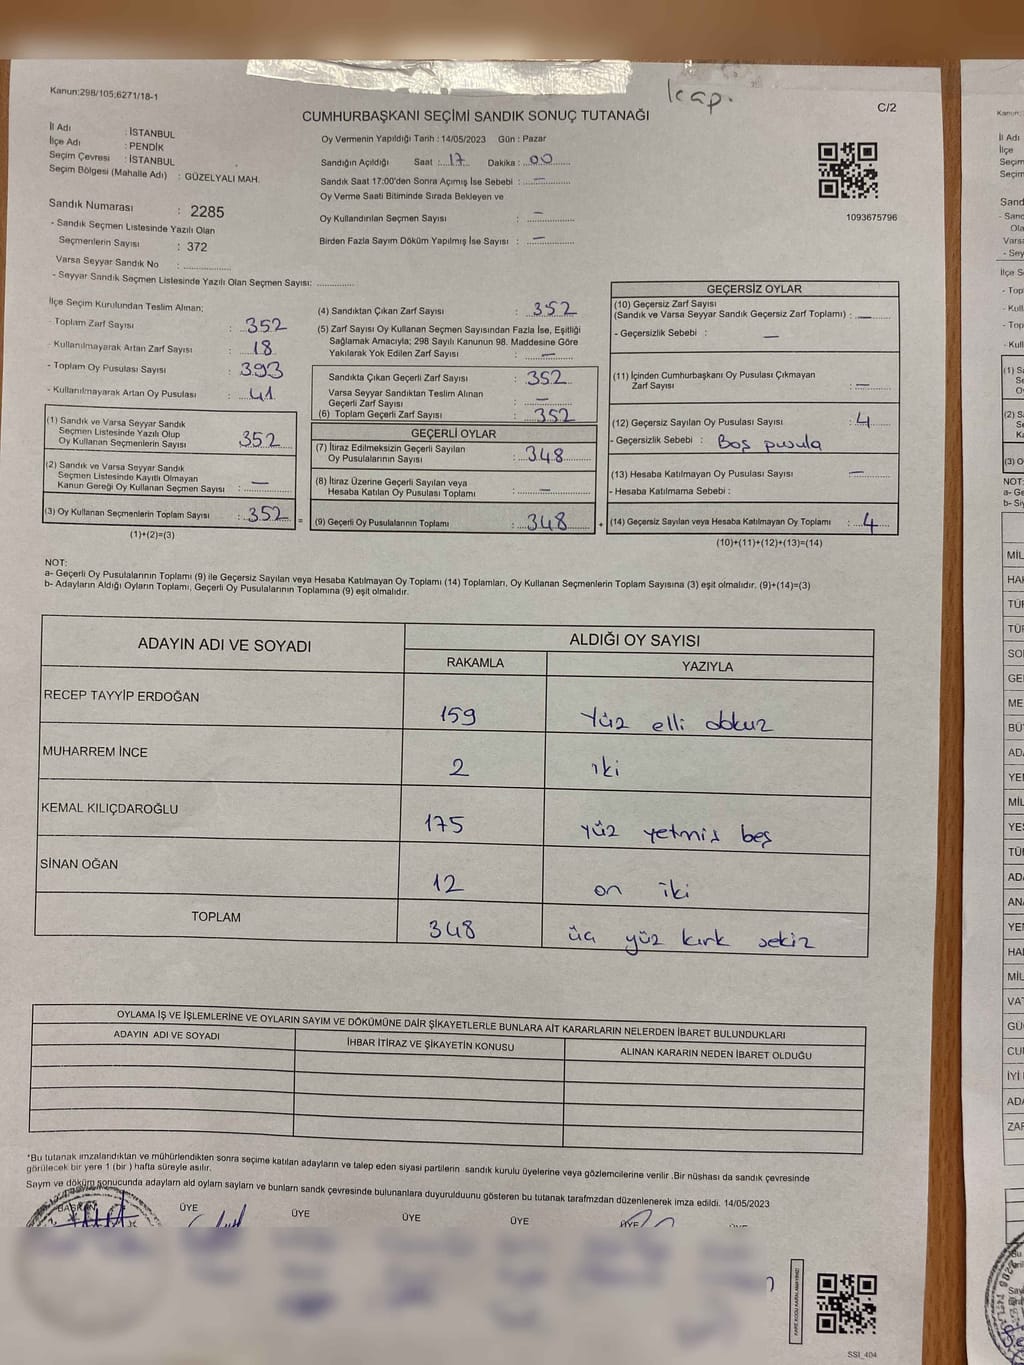 kap.
Kanun:298/105;6271/18-1
C/2
CUMHURBAŞKANI SEÇİMİ SANDIK SONUÇ TUTANAĞI
İl Adı : İSTANBUL
İlçe Adı : PENDİK
Seçim Çevresi : İSTANBUL
Seçim Bölgesi (Mahalle Adı) : GÜZELYALI MAH.
Oy Vermenin Yapıldığı Tarih : 14/05/2023 Gün : Pazar
Sandığın Açıldığı Saat : 17 Dakika : 00
Sandık Saat 17:00'den Sonra Açımış İse Sebebi : —
Oy Verme Saati Bitiminde Sırada Bekleyen ve
Oy Kullandırılan Seçmen Sayısı : —
Birden Fazla Sayım Döküm Yapılmış İse Sayısı : —
1093675796
Sandık Numarası : 2285
- Sandık Seçmen Listesinde Yazılı Olan
Seçmenlerin Sayısı : 372
Varsa Seyyar Sandık No : ..............
- Seyyar Sandık Seçmen Listesinde Yazılı Olan Seçmen Sayısı: ............
İlçe Seçim Kurulundan Teslim Alınan;
- Toplam Zarf Sayısı : 352
- Kullanılmayarak Artan Zarf Sayısı : 18
- Toplam Oy Pusulası Sayısı : 393
- Kullanılmayarak Artan Oy Pusulası : 41
(1) Sandık ve Varsa Seyyar Sandık
Seçmen Listesinde Yazılı Olup
Oy Kullanan Seçmenlerin Sayısı : 352
(2) Sandık ve Varsa Seyyar Sandık
Seçmen Listesinde Kayıtlı Olmayan
Kanun Gereği Oy Kullanan Seçmen Sayısı : —
(3) Oy Kullanan Seçmenlerin Toplam Sayısı : 352 =
(1)+(2)=(3)
(4) Sandıktan Çıkan Zarf Sayısı : 352
(5) Zarf Sayısı Oy Kullanan Seçmen Sayısından Fazla İse, Eşitliği
Sağlamak Amacıyla; 298 Sayılı Kanunun 98. Maddesine Göre
Yakılarak Yok Edilen Zarf Sayısı : —
Sandıkta Çıkan Geçerli Zarf Sayısı : 352
Varsa Seyyar Sandıktan Teslim Alınan
Geçerli Zarf Sayısı : —
(6) Toplam Geçerli Zarf Sayısı : 352
GEÇERLİ OYLAR
(7) İtiraz Edilmeksizin Geçerli Sayılan
Oy Pusulalarının Sayısı : 348
(8) İtiraz Üzerine Geçerli Sayılan veya
Hesaba Katılan Oy Pusulası Toplamı : —
(9) Geçerli Oy Pusulalarının Toplamı : 348 +
GEÇERSİZ OYLAR
(10) Geçersiz Zarf Sayısı
(Sandık ve Varsa Seyyar Sandık Geçersiz Zarf Toplamı) : —
- Geçersizlik Sebebi : —
(11) İçinden Cumhurbaşkanı Oy Pusulası Çıkmayan
Zarf Sayısı : —
(12) Geçersiz Sayılan Oy Pusulası Sayısı : 4
- Geçersizlik Sebebi : Boş pusula
(13) Hesaba Katılmayan Oy Pusulası Sayısı —
- Hesaba Katılmama Sebebi :
(14) Geçersiz Sayılan veya Hesaba Katılmayan Oy Toplamı : 4
(10)+(11)+(12)+(13)=(14)
NOT:
a- Geçerli Oy Pusulalarının Toplamı (9) ile Geçersiz Sayılan veya Hesaba Katılmayan Oy Toplamı (14) Toplamları, Oy Kullanan Seçmenlerin Toplam Sayısına (3) eşit olmalıdır. (9)+(14)=(3)
b- Adayların Aldığı Oyların Toplamı, Geçerli Oy Pusulalarının Toplamına (9) eşit olmalıdır.
ADAYIN ADI VE SOYADI ALDIĞI OY SAYISI
RAKAMLA YAZIYLA
RECEP TAYYİP ERDOĞAN 159 Yüz elli dokuz
MUHARREM İNCE 2 iki
KEMAL KILIÇDAROĞLU 175 yüz yetmiş beş
SİNAN OĞAN 12 on iki
TOPLAM 348 üç yüz kırk sekiz
OYLAMA İŞ VE İŞLEMLERİNE VE OYLARIN SAYIM VE DÖKÜMÜNE DAİR ŞİKAYETLERLE BUNLARA AİT KARARLARIN NELERDEN İBARET BULUNDUKLARI
ADAYIN ADI VE SOYADI İHBAR İTİRAZ VE ŞİKAYETİN KONUSU ALINAN KARARIN NEDEN İBARET OLDUĞU
*Bu tutanak imzalandıktan ve mühürlendikten sonra seçime katılan adayların ve talep eden siyasi partilerin sandık kurulu üyelerine veya gözlemcilerine verilir .Bir nüshası da sandık çevresinde
görülecek bir yere 1 (bir ) hafta süreyle asılır.
Sayım ve döküm sonucunda adayların ald oyların sayların ve bunların sandk çevresinde bulunanlara duyurulduunu gösteren bu tutanak tarafmzdan düzenlenerek imza edildi. 14/05/2023
BAŞKAN ÜYE ÜYE ÜYE ÜYE ÜYE
SSI_404